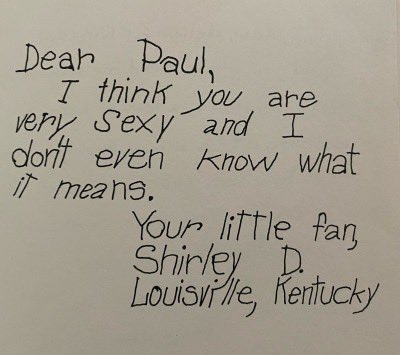 Dear Paul,
I think you are
very sexy and I
don't even know what
it means.
Your little fan,
Shirley D.
Louisville, Kentucky